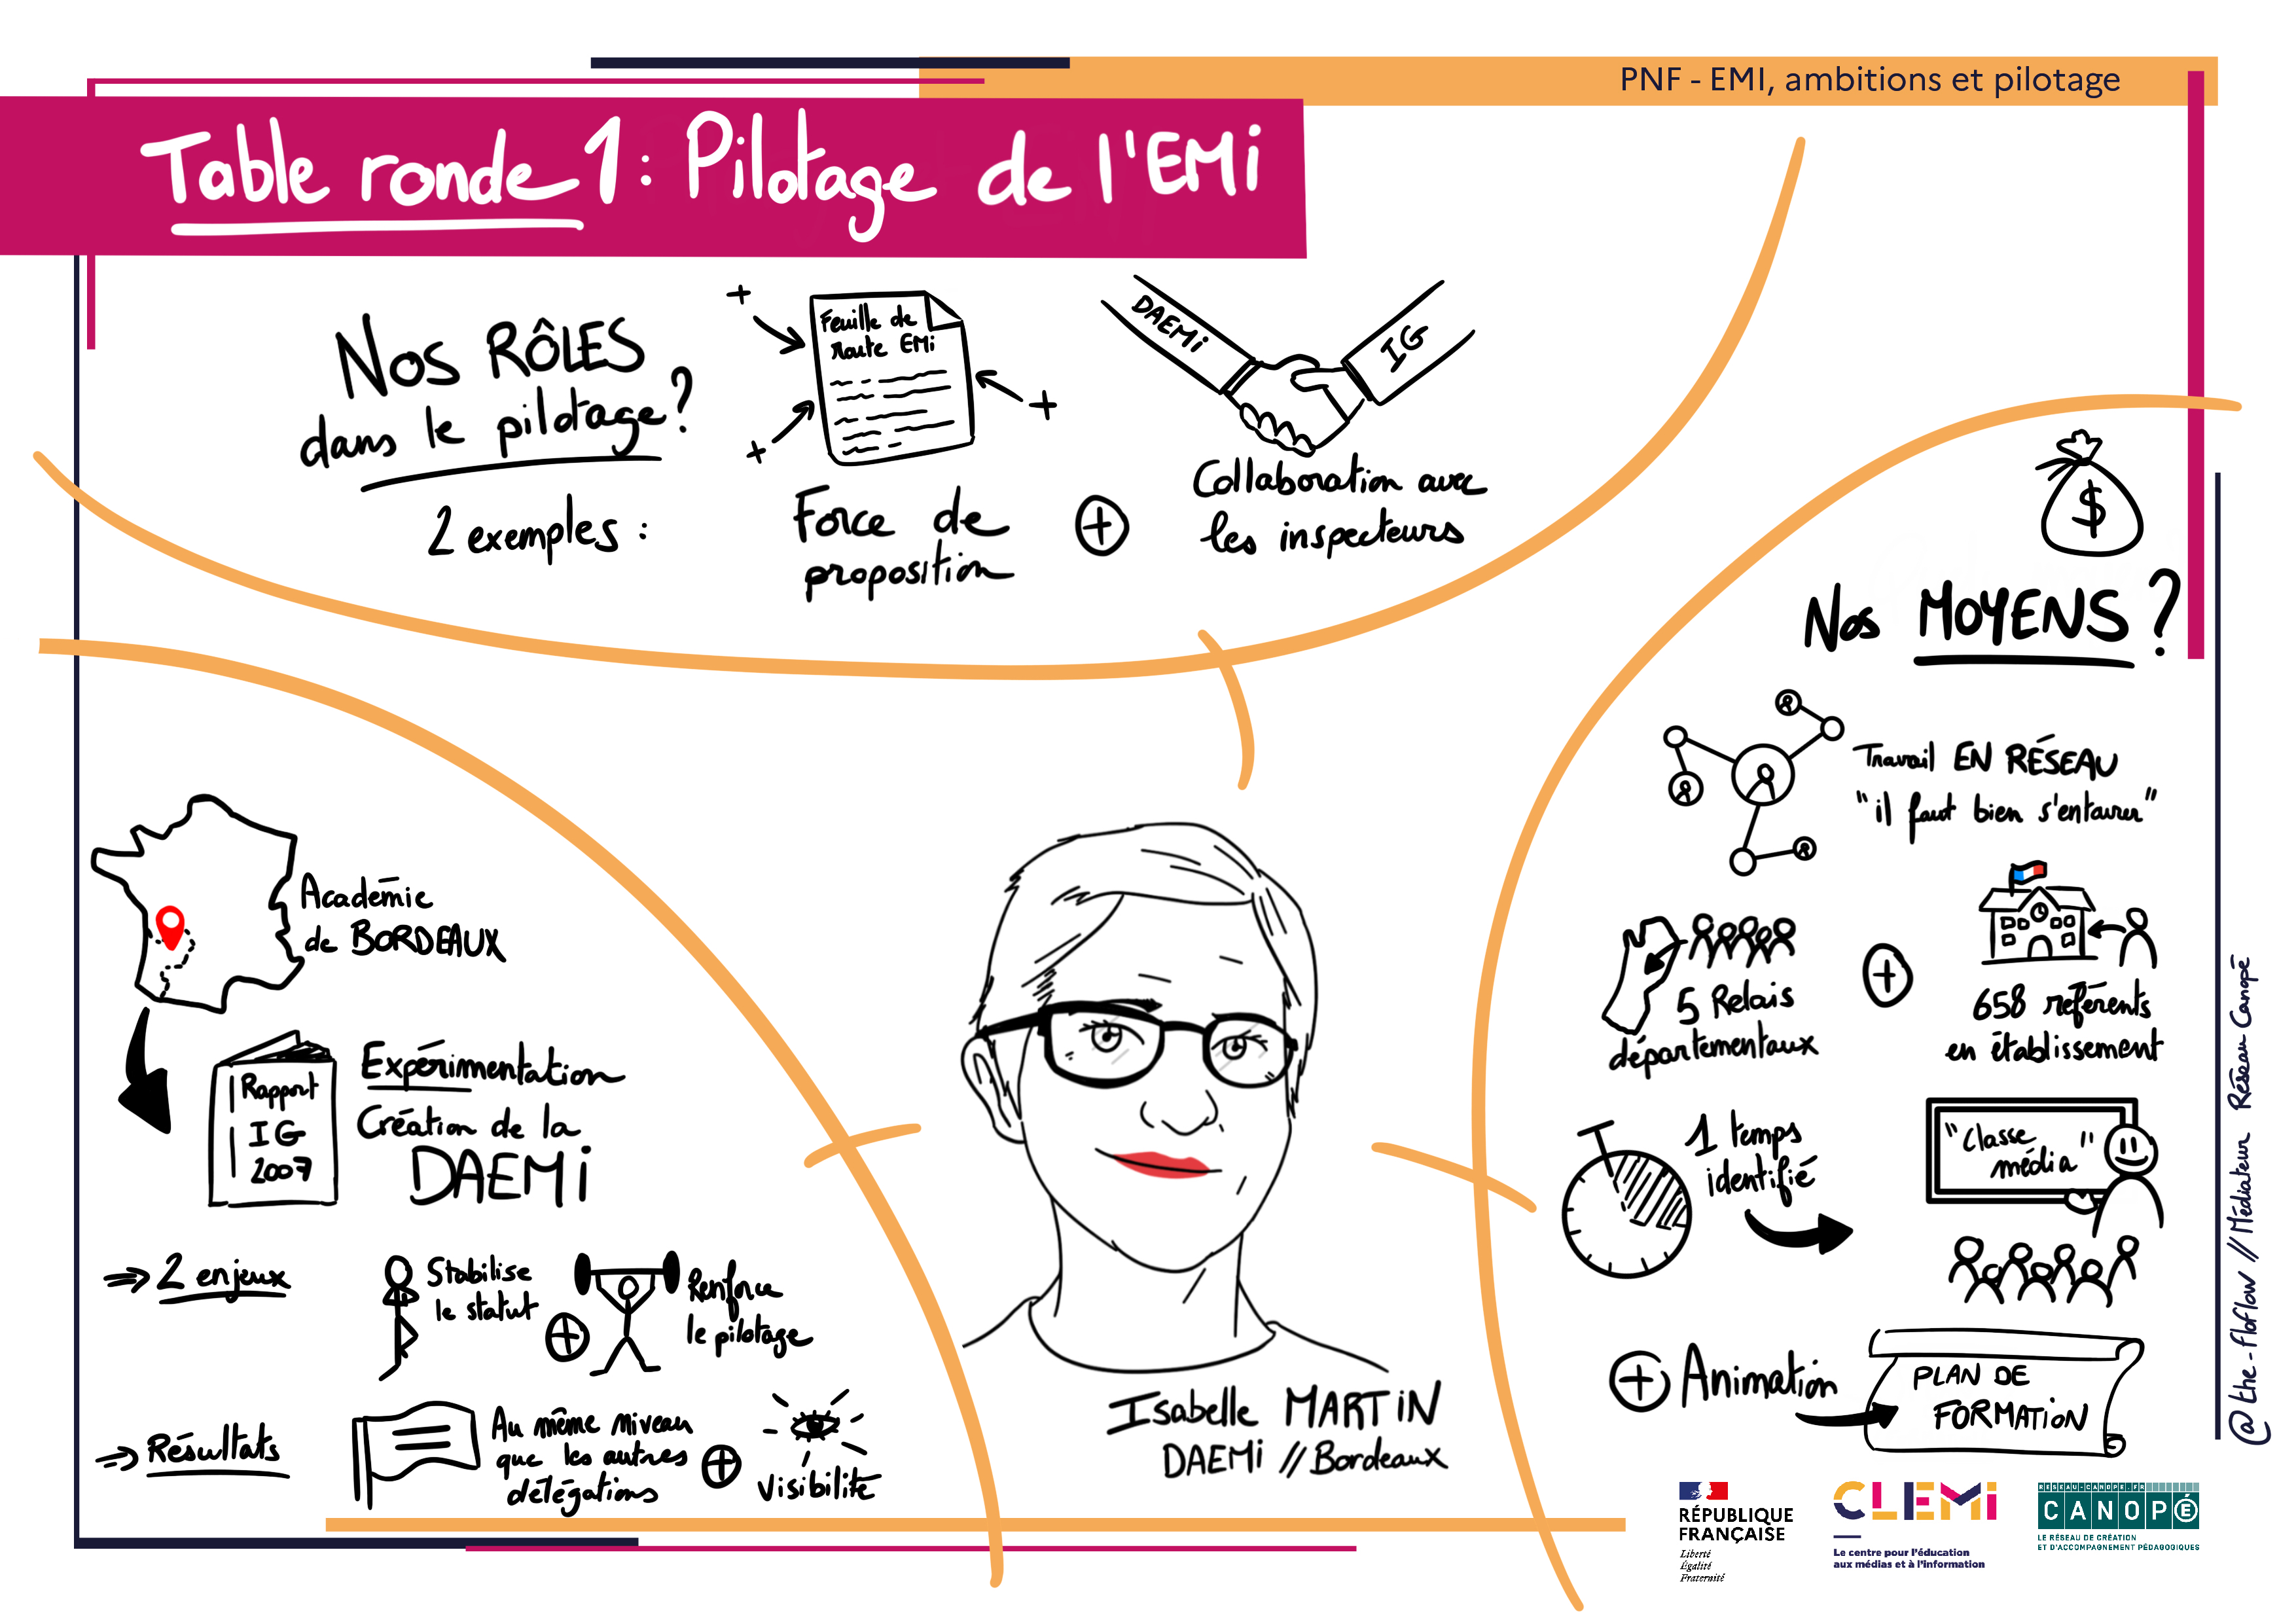 PNF - EMI, ambitions et pilotage
Table ronde 1 : Pilotage de l'EMi
Nos RÔLES
dans le pilotage ?
2 exemples :
Feuille de
Route EMi
Force de
proposition
+
DAEMi
IG
Collaboration avec
les inspecteurs
$
Nos MOYENS ?
Travail EN RÉSEAU
"il faut bien s'entourer"
5 Relais
départementaux
+
658 référents
en établissement
1 temps
identifié
"Classe
média"
+ Animation
PLAN DE
FORMATiON
Académie
de BORDEAUX
Rapport
IG
2007
Expérimentation
Création de la
DAEMi
⇒ 2 enjeux
Stabilise
le statut
+
Renforce
le pilotage
⇒ Résultats
Au même niveau
que les autres
délégations
+
Visibilité
Isabelle MARTiN
DAEMi // Bordeaux
@the-floflow // Médiateur Réseau Canopé
RÉPUBLIQUE
FRANÇAISE
Liberté
Égalité
Fraternité
CLEMi
Le centre pour l'éducation
aux médias et à l'information
RESEAU-CANOPE.FR
CANOPÉ
LE RÉSEAU DE CRÉATION
ET D'ACCOMPAGNEMENT PÉDAGOGIQUES